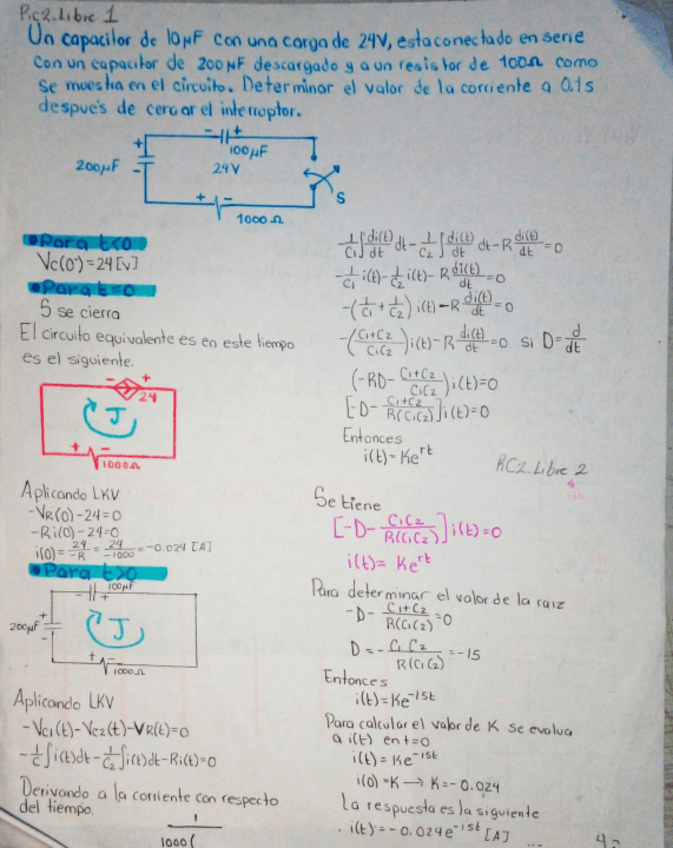 RC2.Libre 1
Un capacitor de 10μF con una carga de 24V, esta conectado en serie
con un capacitor de 200μF descargado y a un resistor de 100Ω como
se muestra en el circuito. Determinar el valor de la corriente a 0.1s
después de cerrar el interruptor.
- +
100μF
+
200μF
-
24V
S
+ -
1000Ω
•Para t<0
Vc(0⁻)=24[V]
•Para t=0
S se cierra
El circuito equivalente es en este tiempo
es el siguiente.
- +
24
J
+ -
1000Ω
Aplicando LKV
-VR(0)-24=0
-Ri(0)-24=0
i(0)=24/-R=24/-1000=-0.024 [A]
•Para t>0
100μF
- +
200μF
+
-
J
+ -
1000Ω
Aplicando LKV
-Vc1(t)-Vc2(t)-VR(t)=0
-1/C∫i(t)dt-1/C2∫i(t)dt-Ri(t)=0
Derivando a la corriente con respecto
del tiempo.
1
1000(
-1/C1∫di(t)/dt dt-1/C2∫di(t)/dt dt-R di(t)/dt=0
-1/C1 i(t)-1/C2 i(t)-R di(t)/dt=0
-(1/C1+1/C2)i(t)-R di(t)/dt=0
-(C1+C2/C1C2)i(t)-R di(t)/dt=0 si D=d/dt
(-RD-C1+C2/C1C2)i(t)=0
[-D-C1+C2/R(C1C2)]i(t)=0
Entonces
i(t)=Ke^rt
RC2.Libre 2
Se tiene
[-D-C1C2/R(C1C2)]i(t)=0
i(t)= Ke^rt
Para determinar el valor de la raiz
-D-C1+C2/R(C1C2)=0
D=-C1 C2/R(C1C2)=-15
Entonces
i(t)=Ke^-15t
Para calcular el valor de K se evalua
a i(t) en t=0
i(t)=Ke^-15t
i(0)=K→K=-0.024
La respuesta es la siguiente
i(t)=-0.024e^-15t[A]